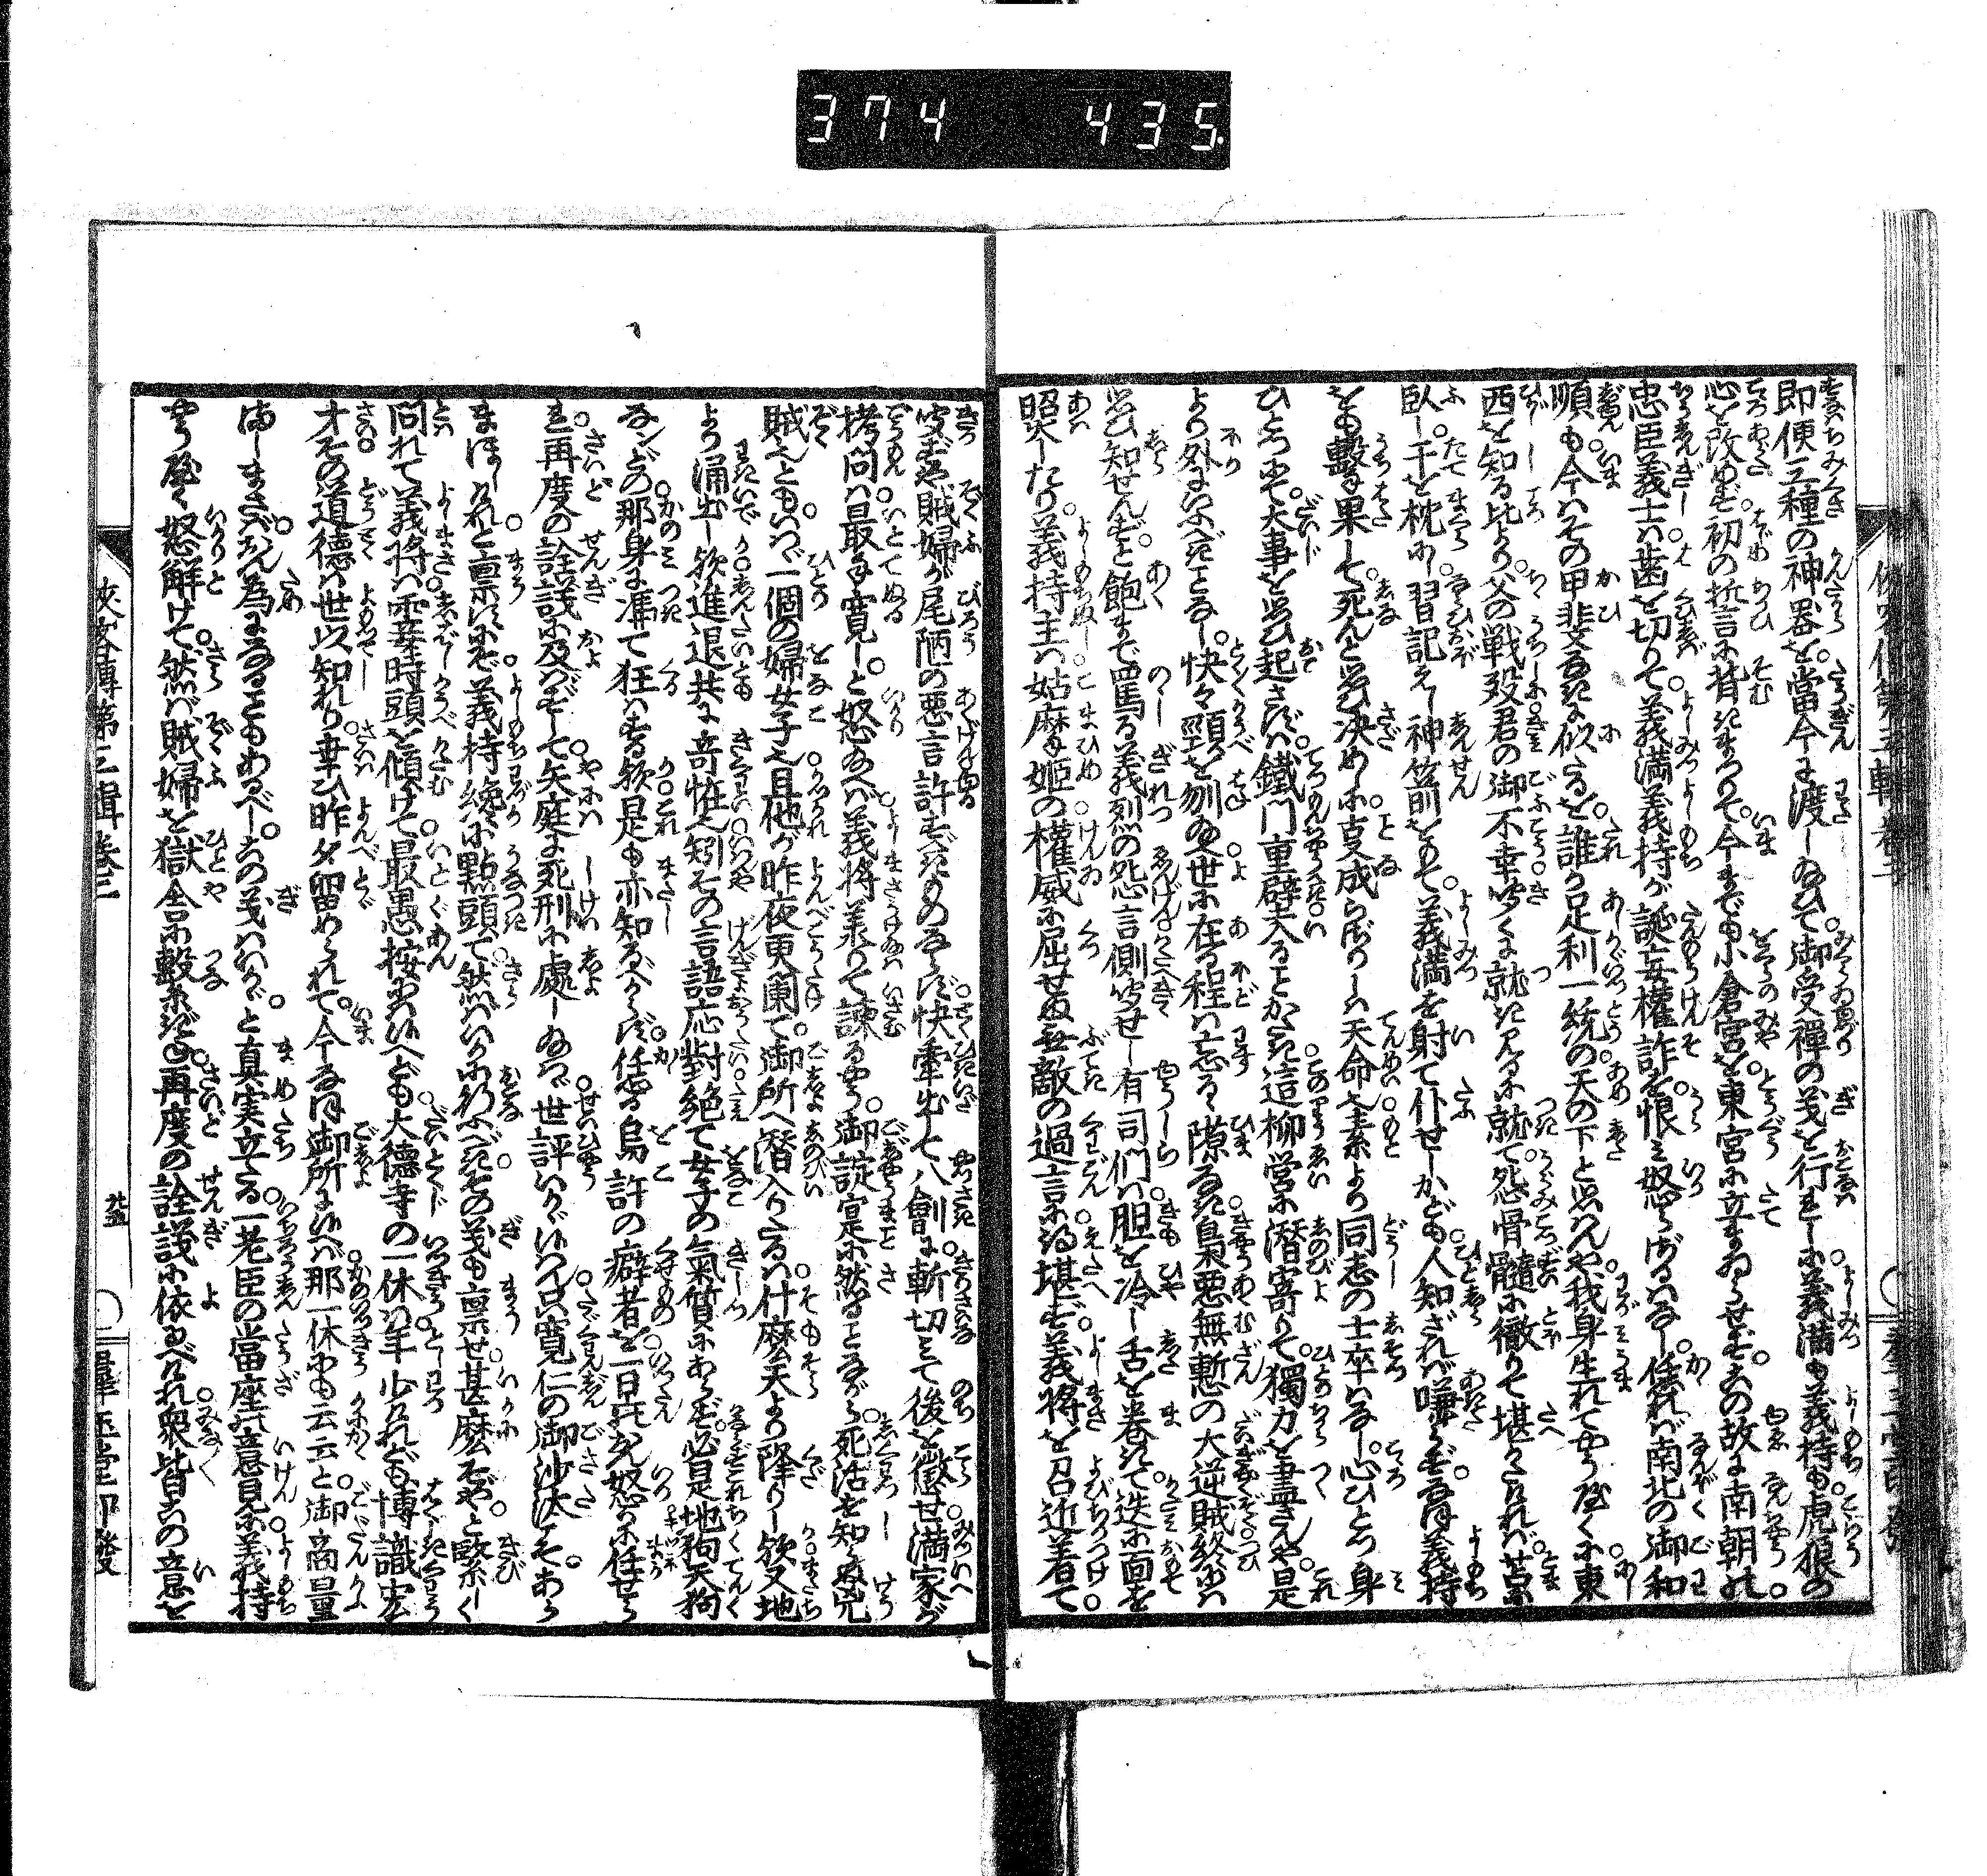 374 435
即便三種の神器を當今に渡しゐひて。御受禪の義を行れしに義満も義持も虎狼の
心を改めず初の誓言に背きまつりて。今までも小倉宮を東宮に立まゐらせず。この故に南朝の
忠臣義士は歯を切りて義満義持が誕妄權詐を恨み怒らざるはなし。任れば南北の御和
順も今はその甲斐なきに似たるを。誰か足利一統の天の下と思はんや我身生れてやう〳〵に東
西を知る比より。父の戦殁君の御不幸。うち續くに就きても怨骨髓に徹りて堪へざれば。苫に
臥し干を枕に習記えし神箭をもて。義満を射て仆せしかども人知ざれば嗛らず。なほ義持
をも撃果して死んと思ひ決めしに。事成らざりしは天命也。素より同志の士卒はなし。心ひとつ身
ひとつにて。大事を思ひ起さずは。鐵門重壁たることかたき這柳営に潜寄りて。獨力を盡さんや。是
より外にいふべきことなし。快々頸を刎ゐへ。世に在る程は忘るゝ隙なき梟悪無慙の大逆賊。終には
思ひ知せんずと。飽まで罵る義烈の怨言。側聞せし有司们は胆を冷し舌を卷きて。迭に面を
照しけり。義持主は姑麻姫の權威に屈せぬ無敵の過言に得堪ず。義将を召近着て
聞ずや賊婦が尾陋の悪言許すべきものならず。快牽出して八劊に斬切みて後を懲せ。満家が
拷問は最も寛しと怒ゐへば義将承りて諫るやう。御諚寔に然ることながら。死活を知ぬ兇
賊也ともいはゞ。一個の婦女子也。且他が昨夜更闌て。御所へ潜入りたるは。什麼天より降りし歟又地
より涌出し歟進退共に奇怪也。矧その言語応對絶て女子の氣質にあらず。必是地狗天狗
なンどの那身に馮て狂はする歟是も亦知るべからず。任る烏許の癖者を一旦の怒に任せら
れ。再度の詮議に及ばずして。矢庭に死刑に處しゐはゞ。世評いかゞ候はん。只寛仁の御沙汰こそあら
まほしけれと禀すにぞ。義持纔に點頭て。然ばいかに行ふべき。その義も禀せ甚麼ぞやと緊しく
問れて義将は。霎時頭を傾けて。最愚按に候へども大徳寺の一休は年少けれども博識宏
才その道徳は世以知れり。幸ひ昨夕留められて。今なほ御所に候へば。那一休にも云云と御商量
ましまさば。なん為になることもあるべし。この義はいかゞと真実立たる一老臣の當座の意見に義持
やうやく怒解けて。然ば賊婦を獄舎に繫ぎて再度の詮議に依るべけれ。衆皆この意を
俠客傳第三輯卷三